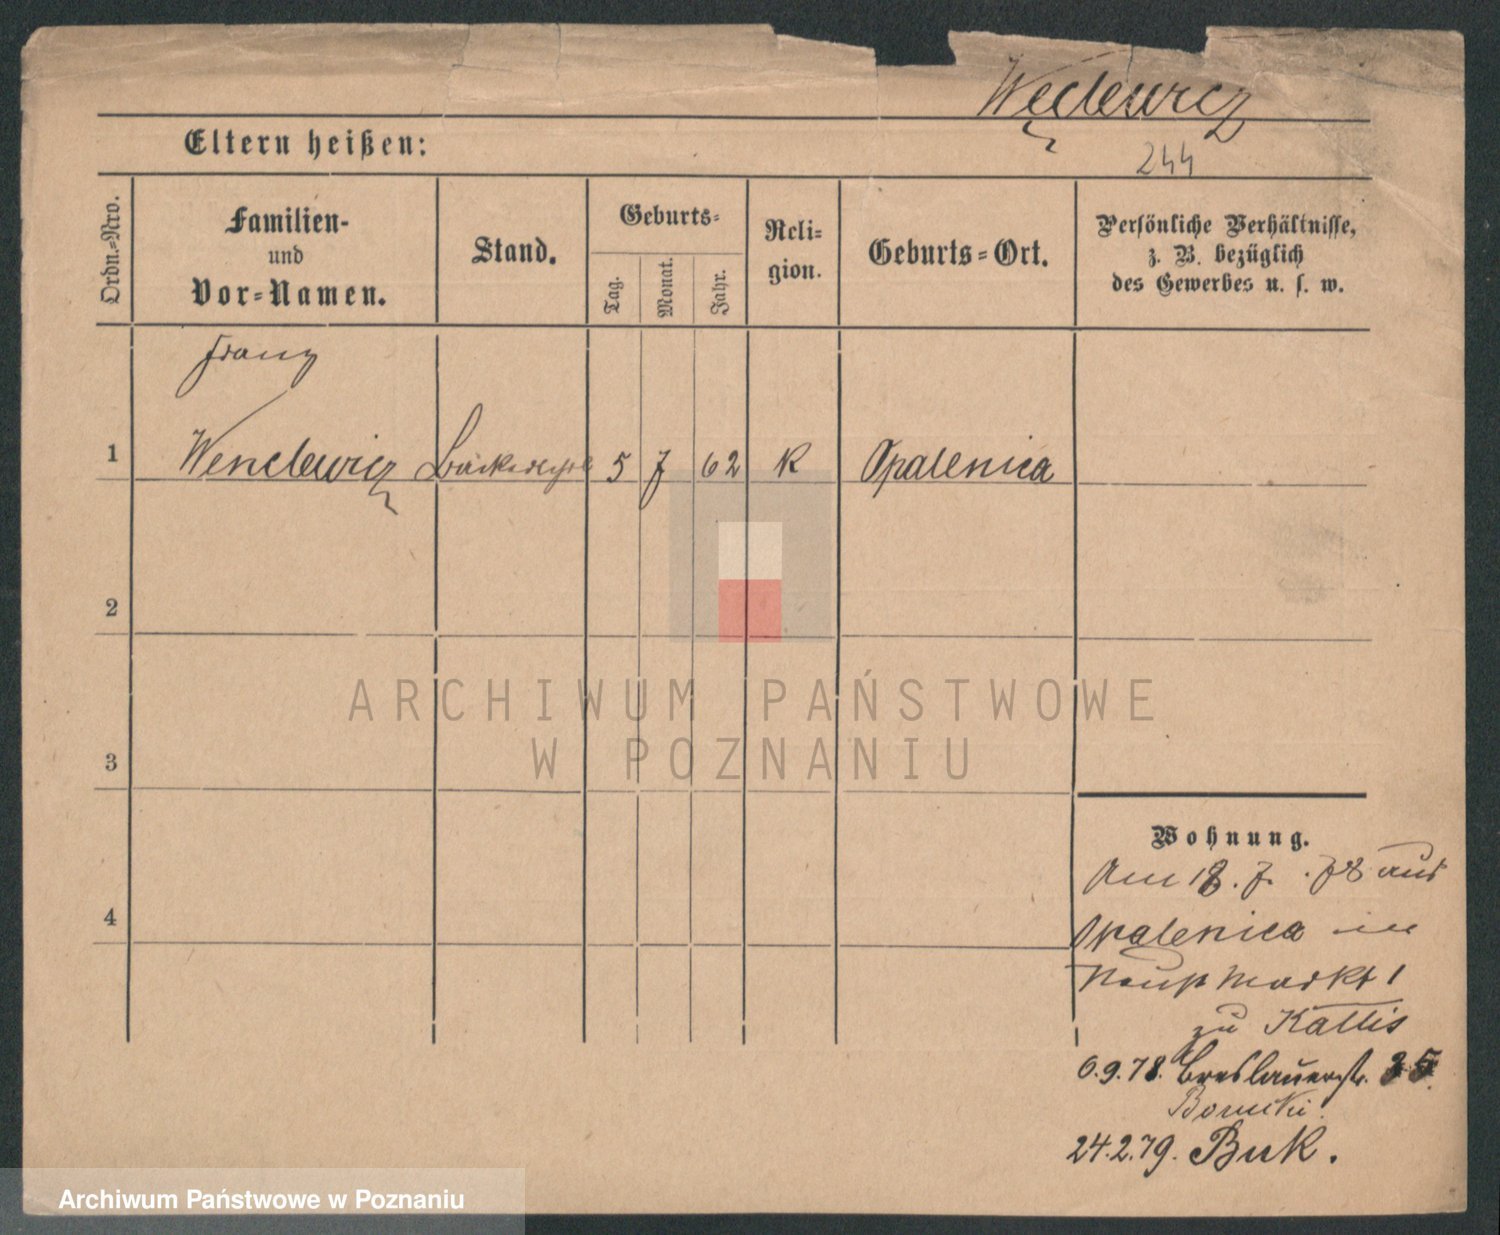 Węclewicz
Eltern heißen:
244
Ordn.-Nro.
Familien-
und
Vor-Namen.
Stand.
Geburts-
Tag.
Monat.
Jahr.
Reli-
gion.
Geburts-Ort.
Persönliche Verhältnisse,
z. B. bezüglich
des Gewerbes u. s. w.
Franz
1 Wenclewicz 5 7 62 K Opalenica
2
3
4
ARCHIWUM PAŃSTWOWE
W POZNANIU
Wohnung.
Am 18. 7. 78 aus
Opalenica in
Markt 1
zu Kattis
6.9.78. Breslauerstr. 35.
24.2.79. Buk.
Archiwum Państwowe w Poznaniu